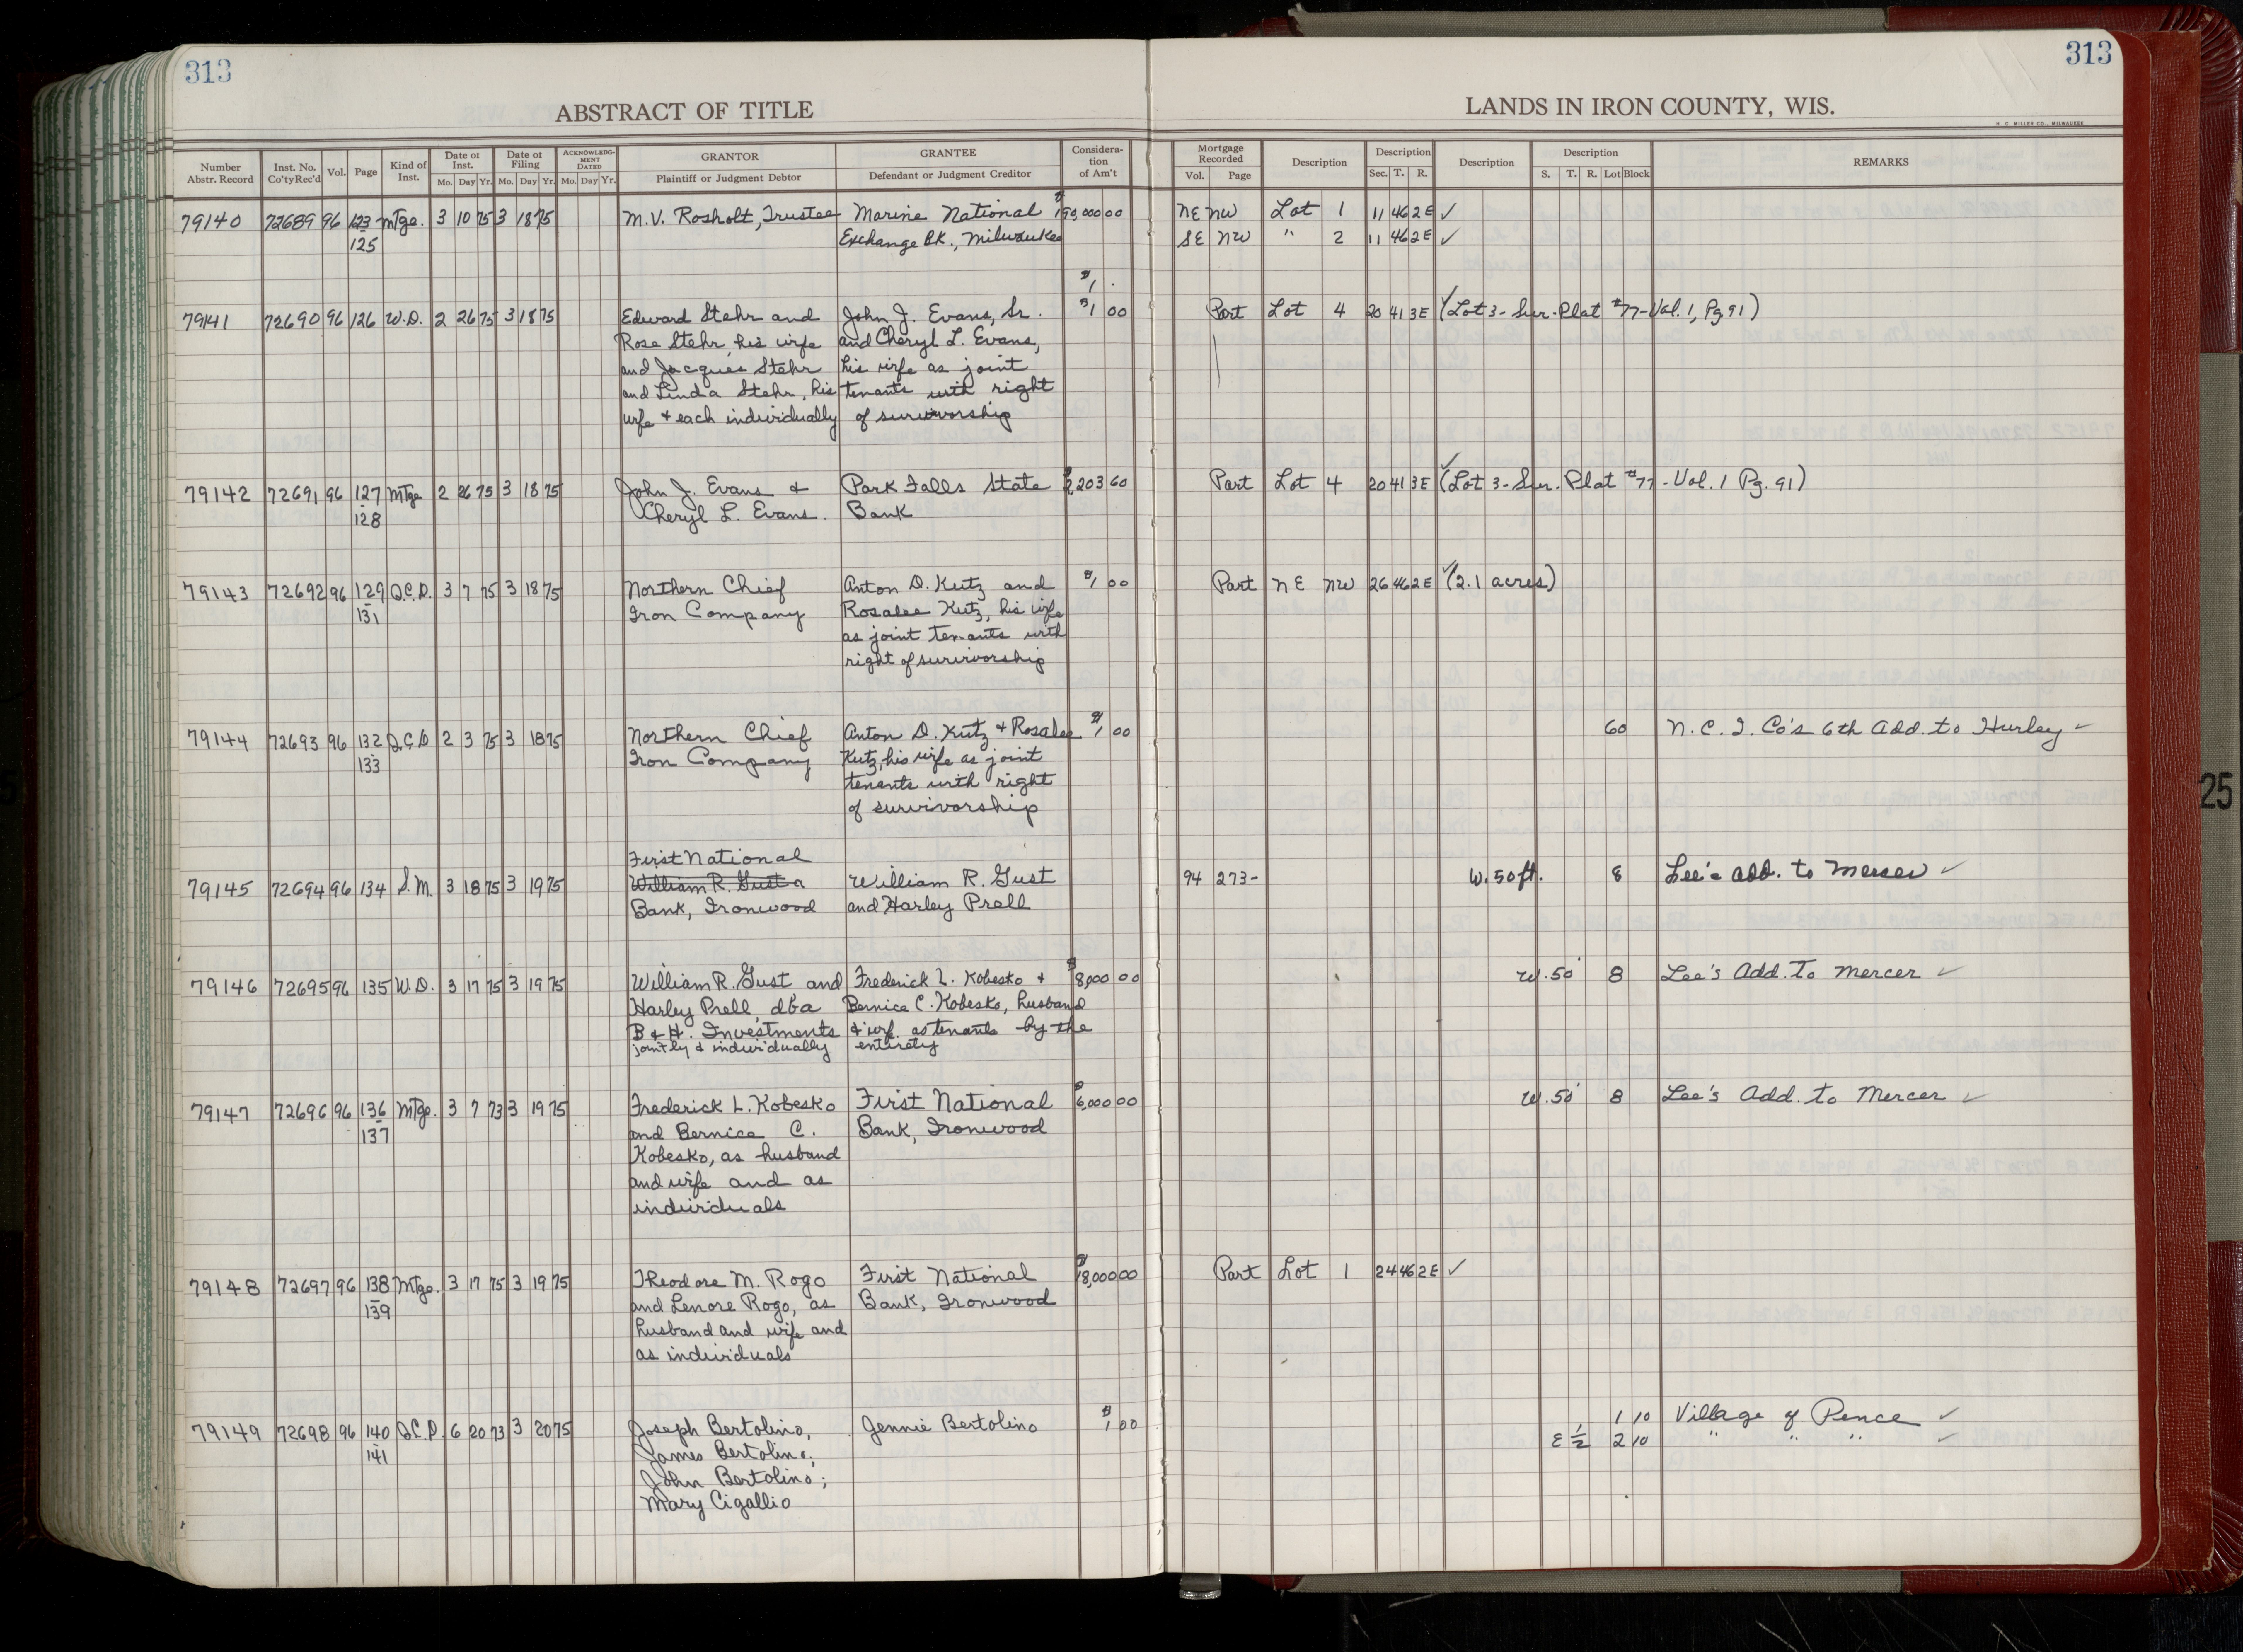 313
313
ABSTRACT OF TITLE
LANDS IN IRON COUNTY, WIS.
H. C. MILLER CO., MILWAUKEE
Number Abstr. Record | Inst. No. Co'ty Rec'd | Vol. | Page | Kind of Inst. | Date of Inst. Mo. Day Yr. | Date of Filing Mo. Day Yr. | ACKNOWLEDGMENT DATED Mo. Day Yr. | GRANTOR Plaintiff or Judgment Debtor | GRANTEE Defendant or Judgment Creditor | Consideration of Am't | Mortgage Recorded Vol. Page | Description | Description Sec. T. R. | Description | Description S. T. R. Lot Block | REMARKS
79140 72689 96 123 Mtge. 3 10 75 3 18 75 M.V. Rosholt, Trustee Marine National $190,000 00 NE NW Lot 1 11 46 2E ✓
125 Exchange Bk., Milwaukee SE NW " 2 11 46 2E ✓
$1 .
79141 72690 96 126 W.D. 2 26 75 3 18 75 Edward Stehr and John J. Evans, Sr. $1 00 Part Lot 4 20 41 3E ✓ (Lot 3 - Sur. Plat #77 - Vol. 1, Pg 91)
Rose Stehr, his wife and Cheryl L. Evans,
and Jacques Stehr his wife as joint
and Linda Stehr, his tenants with right
wife + each individually of survivorship
79142 72691 96 127 Mtge 2 26 75 3 18 75 John J. Evans + Park Falls State 2,203 60 Part Lot 4 20 41 3E ✓ (Lot 3 - Sur. Plat #77 - Vol. 1 Pg. 91)
128 Cheryl L. Evans. Bank
79143 72692 96 129 Q.C.D. 3 7 75 3 18 75 Northern Chief Anton D. Kutz and $1 00 Part NE NW 26 46 2E ✓ (2.1 acres)
131 Iron Company Rosalee Kutz, his wife
as joint tenants with
right of survivorship
79144 72693 96 132 Q.C.D 2 3 75 3 18 75 Northern Chief Anton D. Kutz + Rosalee $1 00 60 N.C.I. Co's 6th Add. to Hurley ✓
133 Iron Company Kutz, his wife as joint
tenants with right
of survivorship
First National
79145 72694 96 134 S.M. 3 18 75 3 19 75 William R. Gust a William R. Gust 94 273- W. 50 ft. 8 Lee's Add. to Mercer ✓
Bank, Ironwood and Harley Prell
79146 72695 96 135 W.D. 3 17 75 3 19 75 William R. Gust and Frederick L. Kobesko + $8,000 00 W. 50' 8 Lee's Add. To Mercer ✓
Harley Prell, dba Bernice C. Kobesko, husband
B + H. Investments + wf. as tenants by the
jointly & individually entirety
79147 72696 96 136 Mtge. 3 7 73 3 19 75 Frederick L. Kobesko First National $6,000 00 W. 50' 8 Lee's Add. to Mercer ✓
137 and Bernice C. Bank, Ironwood
Kobesko, as husband
and wife and as
individuals
79148 72697 96 138 Mtge. 3 17 75 3 19 75 Theodore M. Rogo First National $18,000 00 Part Lot 1 24 46 2E ✓
139 and Lenore Rogo, as Bank, Ironwood
husband and wife and
as individuals
79149 72698 96 140 Q.C.D. 6 20 73 3 20 75 Joseph Bertolino, Jennie Bertolino $1 00 1 10 Village of Pence ✓
141 James Bertolino; E 1/2 2 10 " " " ✓
John Bertolino;
Mary Cigallio
25